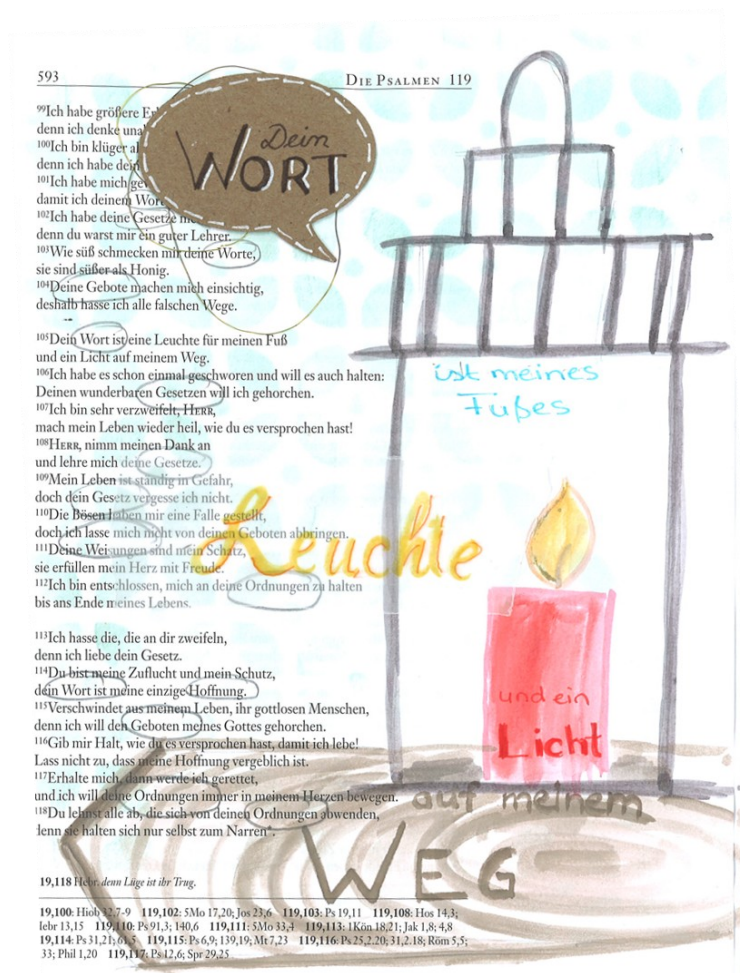 593
DIE PSALMEN 119
Dein
WORT
⁹⁹Ich habe größere
denn ich denke
¹⁰⁰Ich bin klüger
denn ich habe
¹⁰¹Ich habe mich
damit ich deinem Wort
¹⁰²Ich habe deine Gesetze
denn du warst mir ein guter Lehrer.
¹⁰³Wie süß schmecken mir deine Worte,
sie sind süßer als Honig.
¹⁰⁴Deine Gebote machen mich einsichtig,
deshalb hasse ich alle falschen Wege.
¹⁰⁵Dein Wort ist eine Leuchte für meinen Fuß
und ein Licht auf meinem Weg.
¹⁰⁶Ich habe es schon einmal geschworen und will es auch halten:
Deinen wunderbaren Gesetzen will ich gehorchen.
¹⁰⁷Ich bin sehr verzweifelt, HERR,
mach mein Leben wieder heil, wie du es versprochen hast!
¹⁰⁸HERR, nimm meinen Dank an
und lehre mich deine Gesetze.
¹⁰⁹Mein Leben ist ständig in Gefahr,
doch dein Gesetz vergesse ich nicht.
¹¹⁰Die Bösen haben mir eine Falle gestellt,
doch ich lasse mich nicht von deinen Geboten abbringen.
¹¹¹Deine Weisungen sind mein Schatz,
sie erfüllen mein Herz mit Freude.
¹¹²Ich bin entschlossen, mich an deine Ordnungen zu halten
bis ans Ende meines Lebens.
ist meines
Fußes
Leuchte
¹¹³Ich hasse die, die an dir zweifeln,
denn ich liebe dein Gesetz.
¹¹⁴Du bist meine Zuflucht und mein Schutz,
dein Wort ist meine einzige Hoffnung.
¹¹⁵Verschwindet aus meinem Leben, ihr gottlosen Menschen,
denn ich will den Geboten meines Gottes gehorchen.
¹¹⁶Gib mir Halt, wie du es versprochen hast, damit ich lebe!
Lass nicht zu, dass meine Hoffnung vergeblich ist.
¹¹⁷Erhalte mich, dann werde ich gerettet,
und ich will deine Ordnungen immer in meinem Herzen bewegen.
¹¹⁸Du lehnst alle ab, die sich von deinen Ordnungen abwenden,
denn sie halten sich nur selbst zum Narren*.
und ein
Licht
auf meinem
WEG
19,118 Hebr. denn Lüge ist ihr Trug.
19,100: Hiob 32,7-9 119,102: 5Mo 17,20; Jos 23,6 119,103: Ps 19,11 119,108: Hos 14,3;
Hebr 13,15 119,110: Ps 91,3; 140,6 119,111: 5Mo 33,4 119,113: 1Kön 18,21; Jak 1,8; 4,8
19,114: Ps 31,21; 61,5 119,115: Ps 6,9; 139,19; Mt 7,23 119,116: Ps 25,2.20; 31,2.18; Röm 5,5;
33; Phil 1,20 119,117: Ps 12,6; Spr 29,25